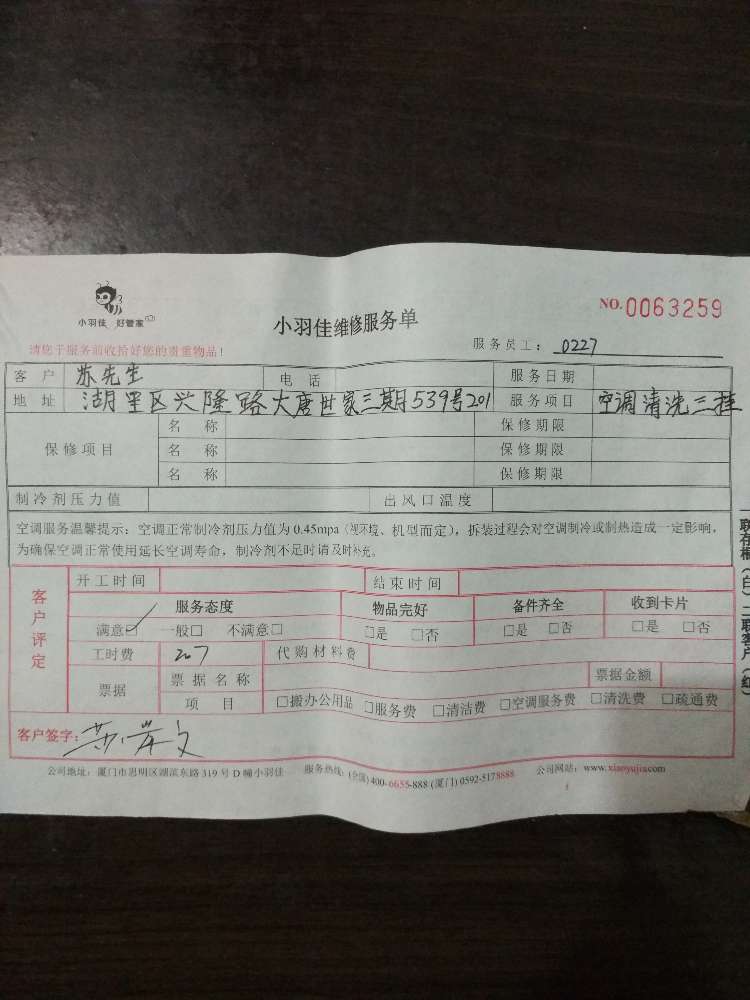 小羽佳 好管家
小羽佳维修服务单
NO.0063259
请您于服务前收拾好您的贵重物品！
服务员工：0227
客户 苏先生 电话 服务日期
地址 湖里区兴隆路大唐世家三期539号201 服务项目 空调清洗三挂
保修项目 名称 保修期限
名称 保修期限
名称 保修期限
制冷剂压力值 出风口温度
空调服务温馨提示：空调正常制冷剂压力值为0.45mpa（视环境、机型而定），拆装过程会对空调制冷或制热造成一定影响，
为确保空调正常使用延长空调寿命，制冷剂不足时请及时补充。
客户评定
开工时间 结束时间
服务态度 物品完好 备件齐全 收到卡片
满意☑ 一般□ 不满意□ □是 □否 □是 □否 □是 □否
工时费 207 代购材料费
票据 票据名称 票据金额
项目 □搬办公用品 □服务费 □清洁费 □空调服务费 □清洗费 □疏通费
客户签字：
公司地址：厦门市思明区湖滨东路319号D幢小羽佳 服务热线：(全国)400-6655-888 (厦门) 0592-5178888 公司网站：www.xiaoyujia.com
一联存根（白）二联客户（红）